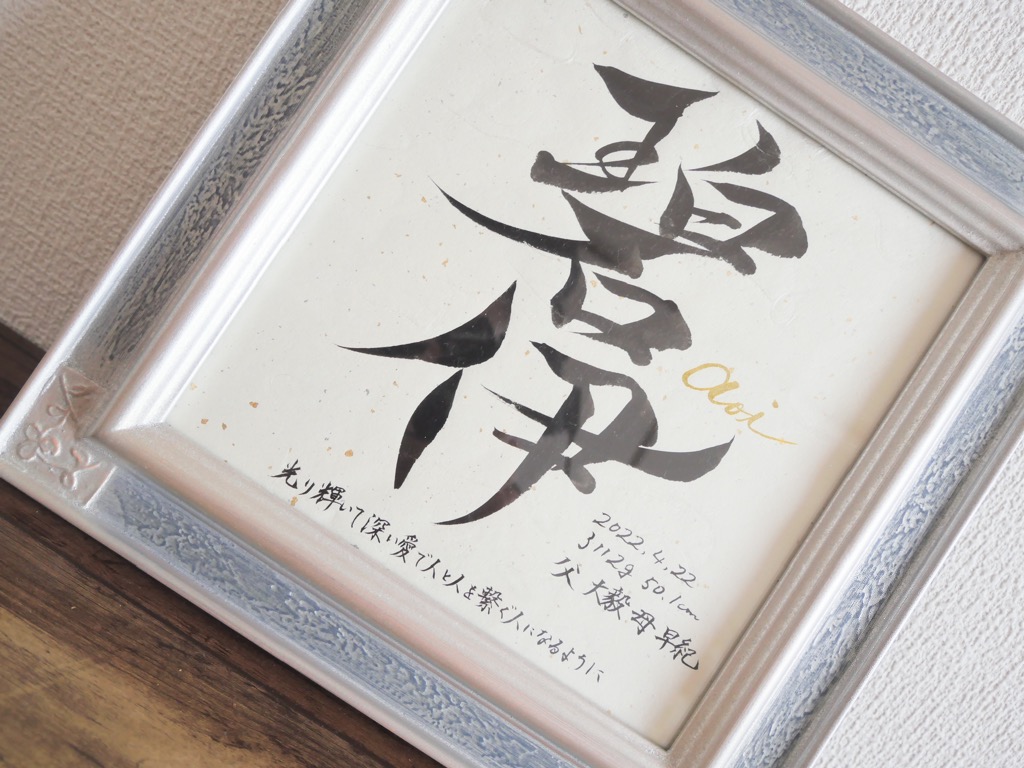 碧伊
aoi
2022.4.22
3112g 50.1cm
父 大毅 母 早紀
光り輝いて深い愛で人と人を繋ぐ人になるように